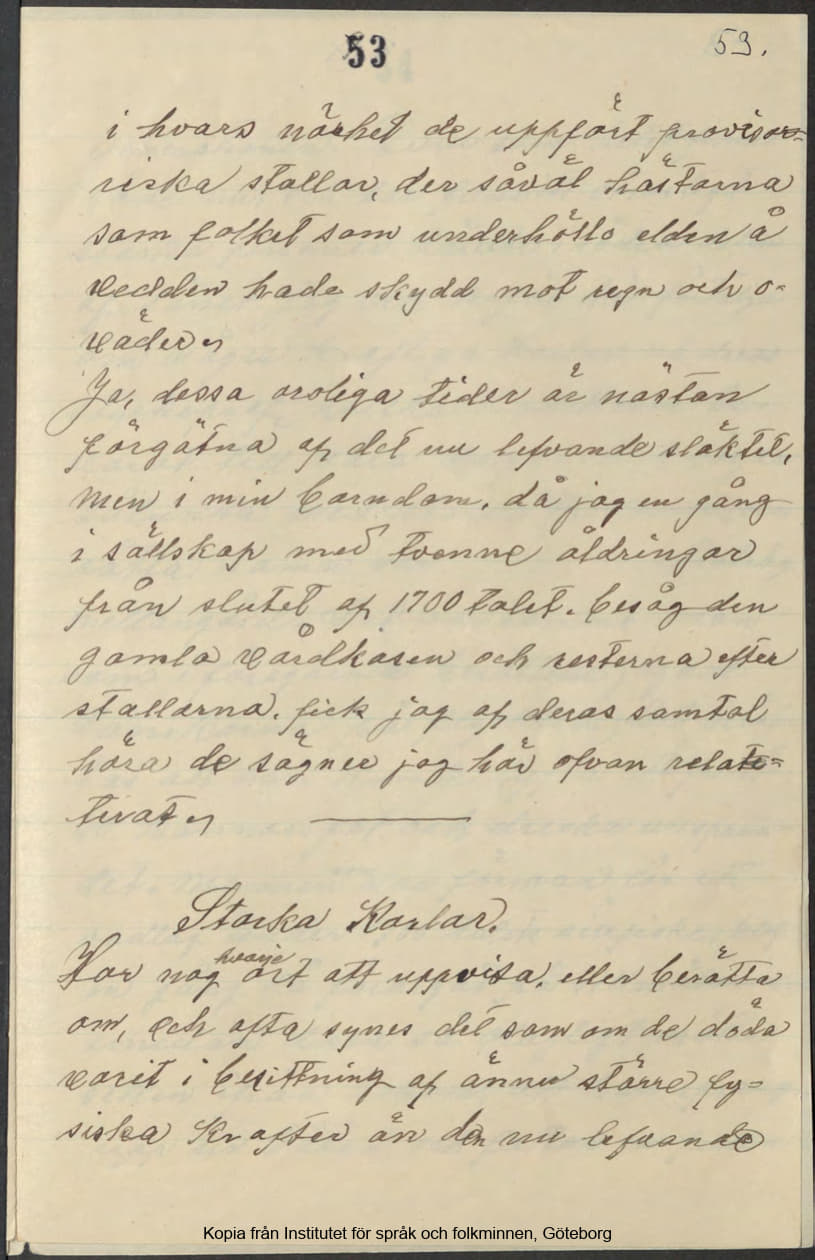 53
53.
i hvars närhet de uppfört proviso=
riska stallar, der såväl hästarna
som folket som underhöllo elden å
vedden hade skydd mot regn och o=
väder,
Ja, dessa oroliga tider är nästan
förgätna af det nu lefvande släktet,
men i min barndom, då jag en gång
i sällskap med tvenne åldringar
från slutet af 1700 talet, besåg den
gamla vårdkasen och resterna efter
stallarna, fick jag af deras samtal
höra de sägner jag här ofvan rela=
terat,
Starka Karlar.
Har nog hvarje ort att uppvisa, eller berätta
om, och ofta synes det som om de döda
varit i besittning af ännu större fy=
siska krafter än den nu lefvande
Kopia från Institutet för språk och folkminnen, Göteborg